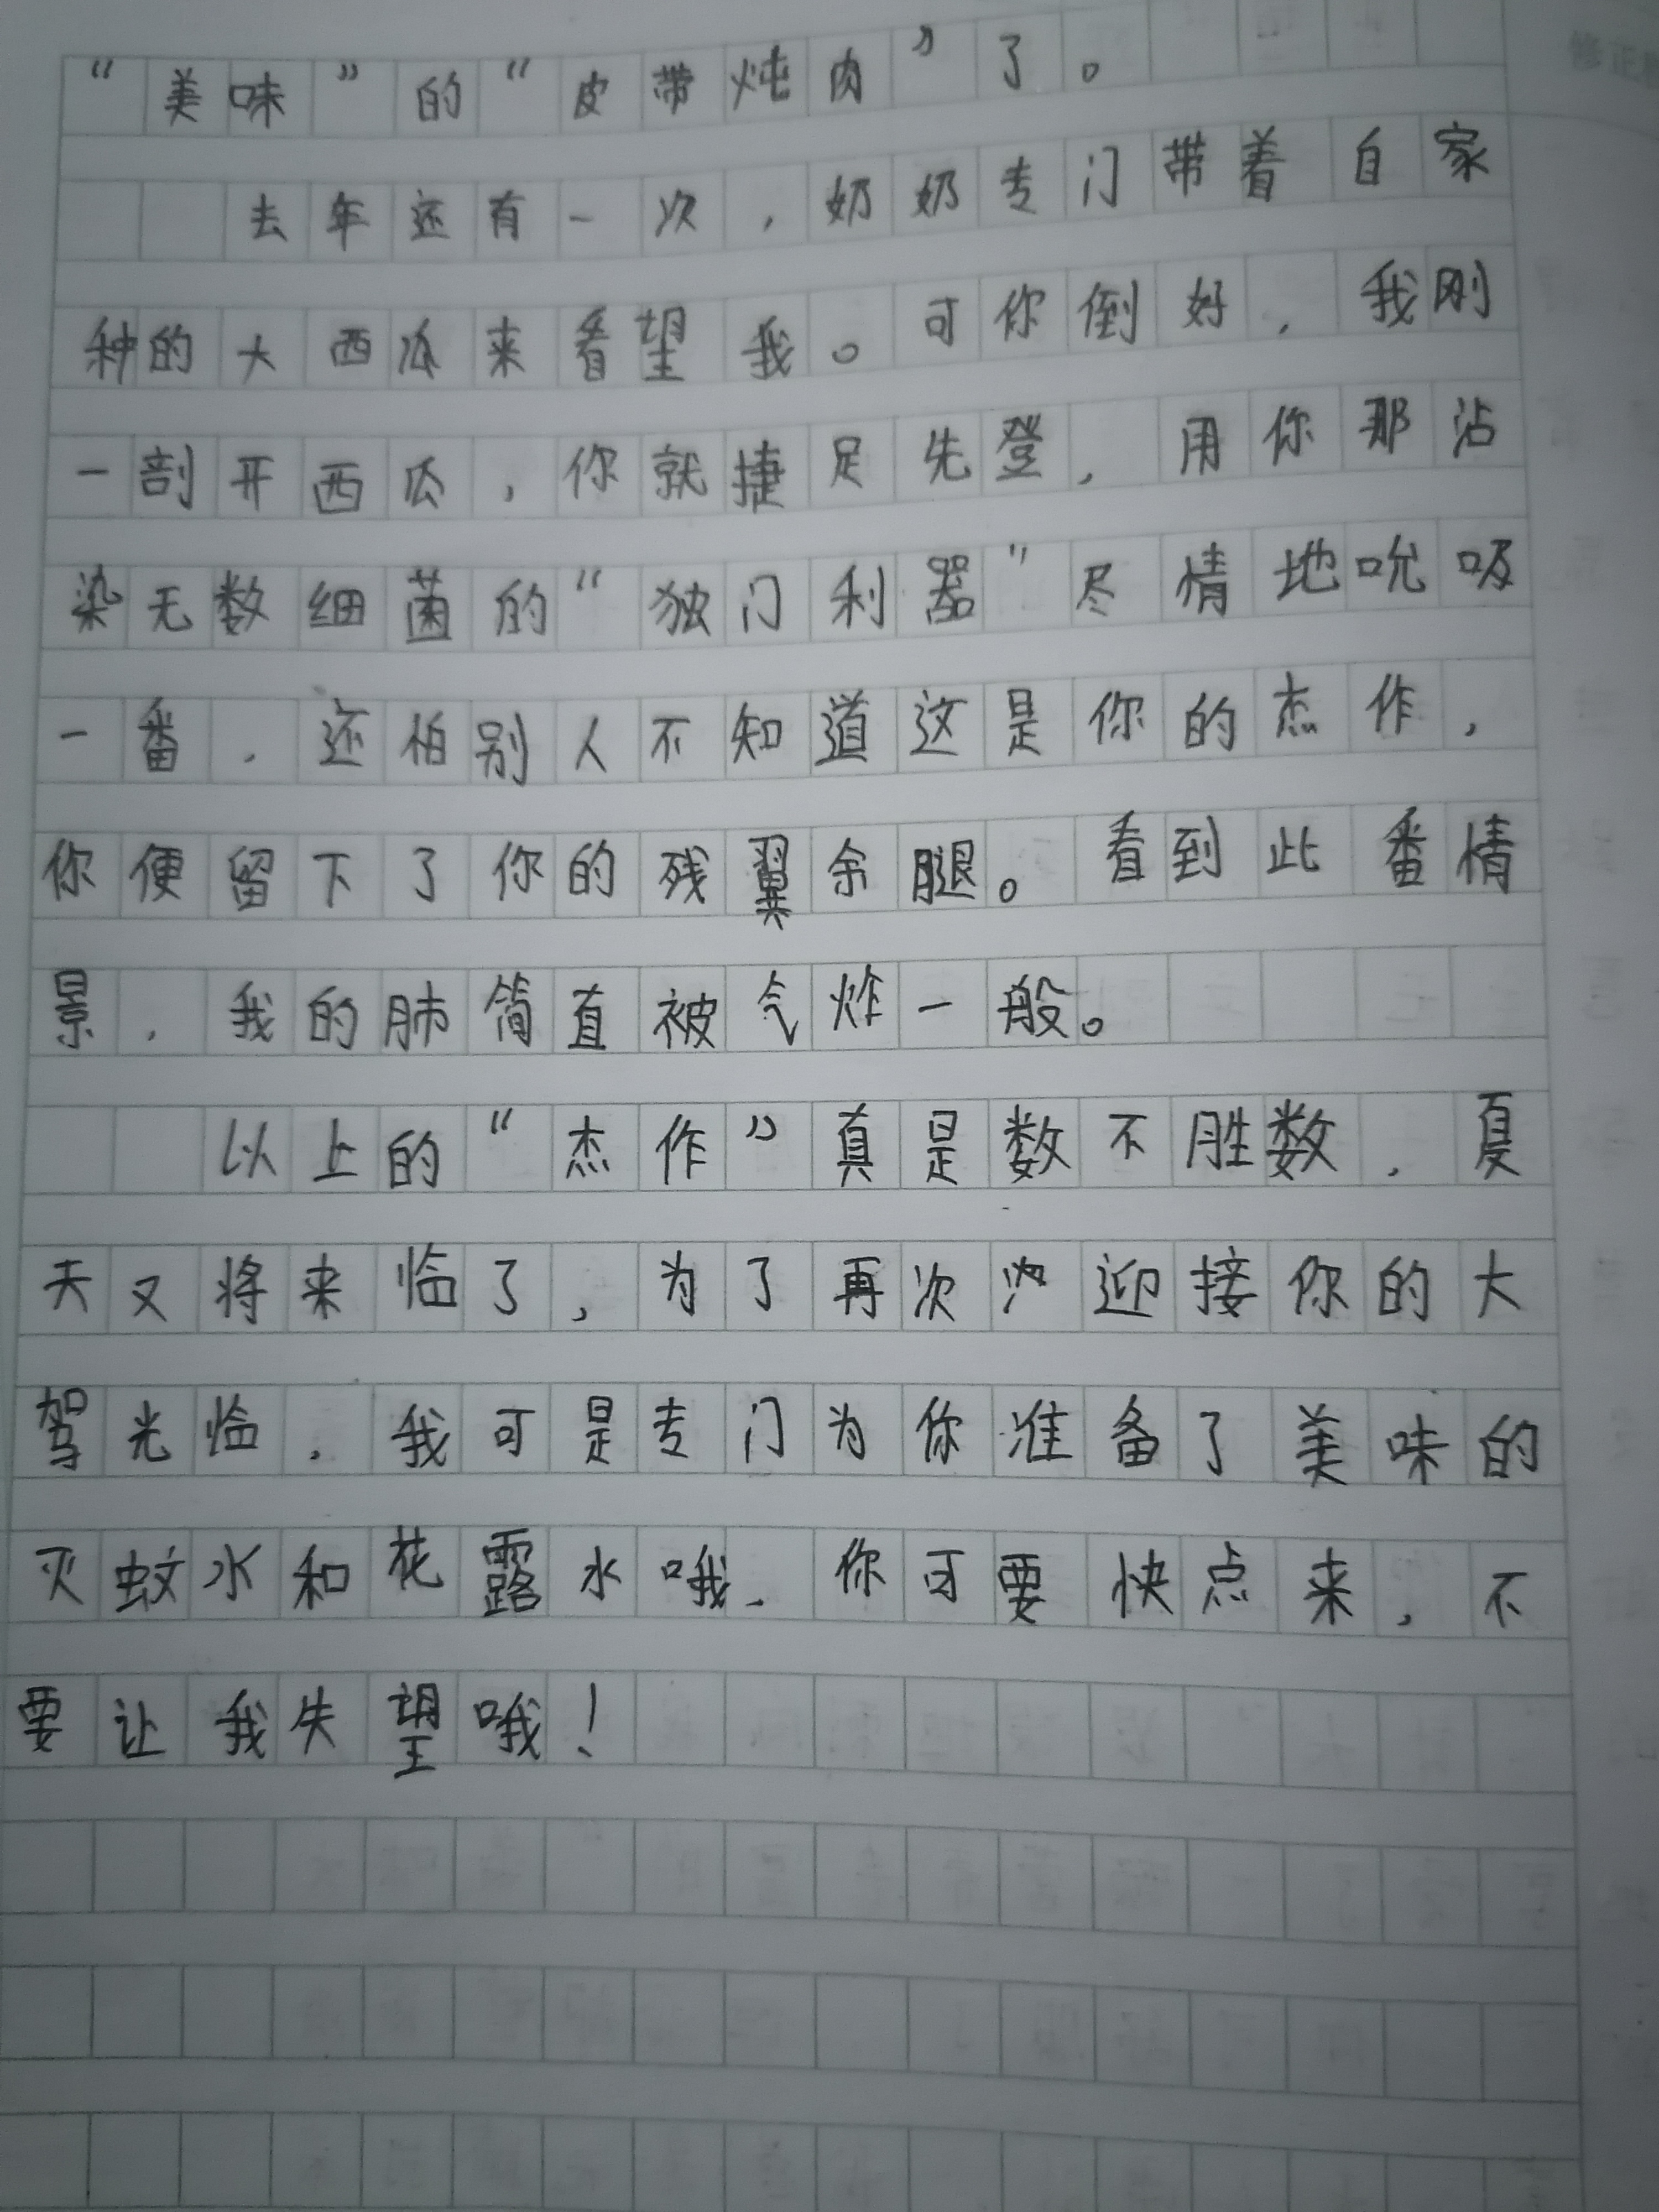 “美味”的“皮带炖肉”了。
去年还有一次，奶奶专门带着自家
种的大西瓜来看望我。可你倒好，我刚
一剖开西瓜，你就捷足先登，用你那沾
染无数细菌的“独门利器”尽情地吮吸
一番，还怕别人不知道这是你的杰作，
你便留下了你的残翼余腿。看到此番情
景，我的肺简直被气炸一般。
以上的“杰作”真是数不胜数，夏
天又将来临了，为了再次迎接你的大
驾光临，我可是专门为你准备了美味的
灭蚊水和花露水哦，你可要快点来，不
要让我失望哦！